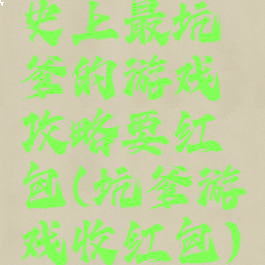 史上最坑
爹的游戏
攻略要红
包(坑爹游
戏收红包)